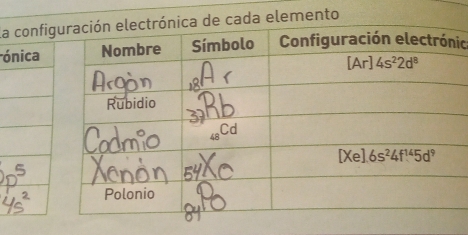 la configuración electrónica de cada elemento
rónica Nombre Símbolo Configuración electrónic
Argón ₁₈Ar [Ar] 4s²2d⁸
Rubidio ₃₇Rb
Cadmio ₄₈Cd
p⁵ Xenón ₅₄Xe [Xe] 6s²4f¹⁴5d⁹
4s² Polonio ₈₄Po